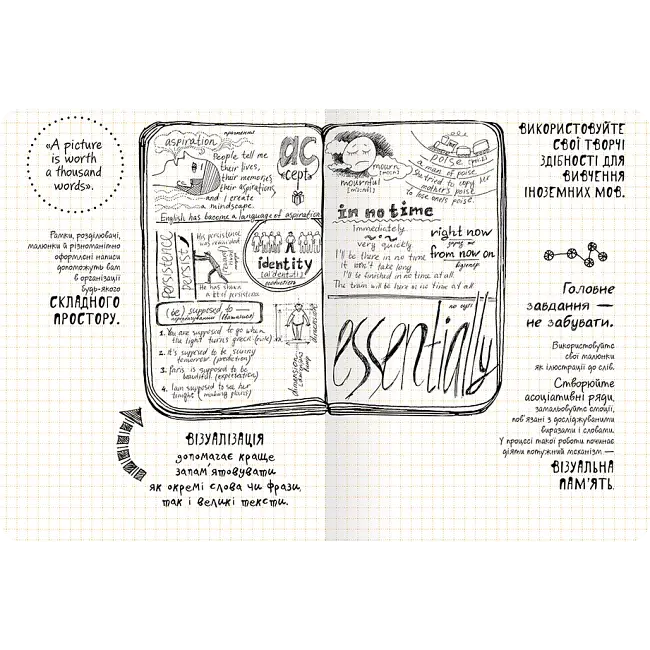 «A picture
is worth
a thousand
words».
Рамки, розділювачі,
малюнки й різноманітно
оформлені написи
допоможуть вам
в організації
будь-якого
СКЛАДНОГО
ПРОСТОРУ.
aspiration
прагнення
People tell me
their lives,
their memories
their aspirations
and I create
a mindscape.
English has become a language of aspiration
ac
«cept»
Persistence
persist
His persistence
was rewarded
He has shown
a lot of persistence
identity
[aɪ'dentəti]
(be) supposed to —
1. You are supposed to go when
the light turns green (rule)
2. It's supposed to be sunny
tomorrow (prediction)
3. Paris is supposed to be
beautiful (expectation)
4. I am supposed to see her
tonight (making plans)
dimension
dimensions
mourn
mournful
poise
a man of poise
She tried to copy her
mother's poise.
To lose one's poise.
in no time
Immediately
very quickly
I'll be there in no time
it won't take long
I'll be finished in no time at all
The train will be here in no time at all
right now
зараз
from now on
essentially
ВІЗУАЛІЗАЦІЯ
допомагає краще
запам'ятовувати
як окремі слова чи фрази,
так і великі тексти.
ВИКОРИСТОВУЙТЕ
СВОЇ ТВОРЧІ
ЗДІБНОСТІ ДЛЯ
ВИВЧЕННЯ
ІНОЗЕМНИХ МОВ.
Головне
завдання —
не забувати.
Використовуйте
свої малюнки
як ілюстрації до слів.
Створюйте
асоціативні ряди,
замальовуйте емоції,
пов'язані з досліджуваними
виразами і словами.
У процесі такої роботи починає
діяти потужний механізм —
ВІЗУАЛЬНА
ПАМ'ЯТЬ.